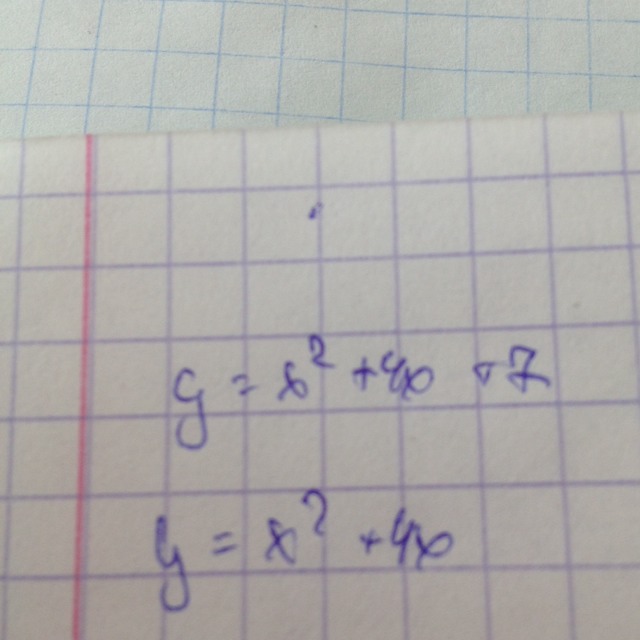 y = x² + 4x + 7
y = x² + 4x